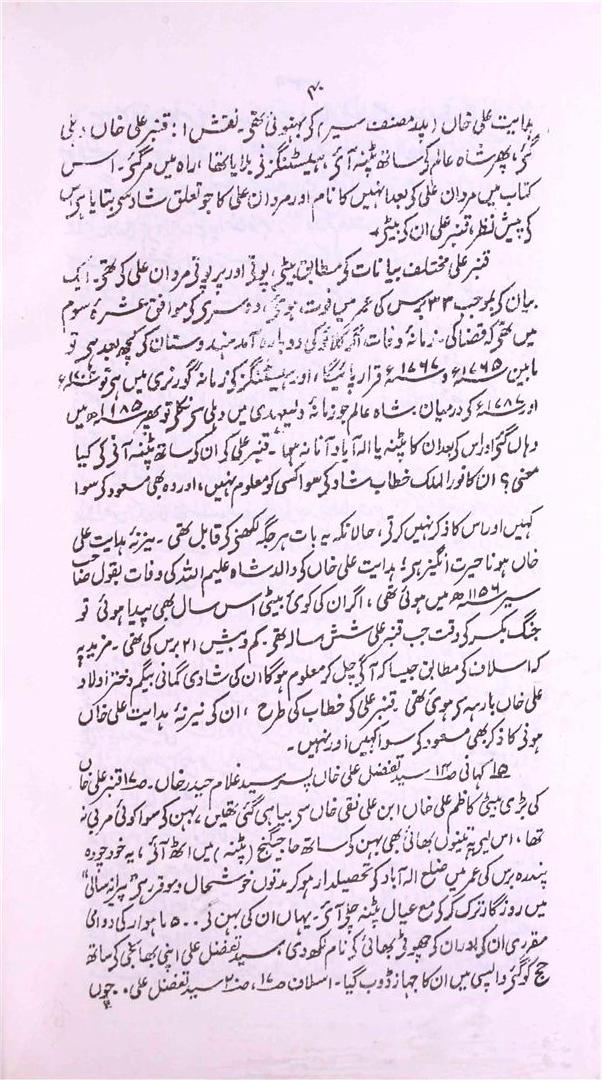 ۴۰
ہدایت علی خاں (پدر مصنف سیر) کی بہنوئی تھی۔ نقش ۱: قنبر علی خاں دہلی
گئی، پھر شاہ عالم کی ساتھ پٹنہ آئی، ہیسٹنگز نی بلایا تھا، راہ میں مرگئی۔ اس
کتاب میں مردان علی کی بعد انہیں کا نام اور مردان علی کا جو تعلق شاد سی بتایا ہی اس
کی پیش نظر، قنبر علی ان کی بیٹی۔
قنبر علی مختلف بیانات کی مطابق بیٹی، پوتی اور پرپوتی مردان علی کی تھی۔ ایک
بیان کی بموجب ۳۳ برس کی عمر میں فوت ہوئی، دوسری کی موافق عشرۂ سوم
میں تھی کہ قضا کی۔ زمانۂ وفات، اگر کلائو کی دوبارہ آمد ہندوستان کی کچھ بعد ہی تو
مابین ۱۷۶۵ء و ۱۷۶۷ء قرار پائیگا، اور ہیسٹنگز کی زمانۂ گورنری میں ہی تو
اور ۱۷۸۷ء کی درمیان۔ شاہ عالم جو زمانۂ ولیعہدی میں دہلی سی نکلی تو پھر ۱۱۸۵ھ میں
وہاں گئی اور اس کی بعد ان کا پٹنہ یا الہ آباد آنا نہ ہوا۔ قنبر علی کی ان کی ساتھ پٹنہ آنی کی کیا
معنی؟ ان کا فور الملک خطاب شاد کی سوا کسی کو معلوم نہیں، اور وہ بھی مسعود کی سوا
کہیں اور اس کا ذکر نہیں کرتی، حالانکہ یہ بات ہر جگہ لکھنی کی قابل تھی۔ ہدایت علی
خاں ہونا حیرت انگیز ہی؛ ہدایت علی خاں کی والد شاہ علیم اللہ کی وفات بقول صاحب
سیر ۱۱۵۶ھ میں ہوئی تھی، اگر ان کی کوئ بیٹی اس سال بھی پیدا ہوئی تو
جنگ بکسر کی وقت جب قنبر علی شش سالہ تھی، کم و بیش ۲۱ برس کی تھی۔ مزید یہ
کہ اسلاف کی مطابق جیسا کہ آگی چل کر معلوم ہوگا ان کی شادی گمانی بیگم دختر اولاد
علی خاں بارہہ سی ہوئ تھی۔ قنبر علی کی خطاب کی طرح، ان کی ہدایت علی خاں
ہونی کا ذکر بھی مسعود کی سوا کہیں اور نہیں۔
۱۵ کہانی ص۱۴ سید تفضل علی خاں پسر سید غلام حیدر خاں۔ ص۱۷ قنبر علی خاں
کی بڑی بیٹی کاظم علی خاں ابن علی نقی خاں سی بیاہی گئی تھیں، بہن کی سوا کوئی مربی نہ
تھا، اس لیی یہ تینوں بھائی بھی بہن کی ساتھ حاجیگنج (پٹنہ) میں اٹھ آئی، یہ خود چودہ
پندرہ برس کی عمر میں ضلع الہ آباد کی تحصیلدار ہو کر مدتوں خوشحال و موقر رہی "پیرانہ سالی"
میں روزگار ترک کر کی مع عیال پٹنہ چلی آئی۔ یہاں ان کی بہن نی ۵۰۰ ماہوار کی دوامی
مقرری ان کی اور ان کی چھوٹی بھائی کی نام لکھ دی، سید تفضل علی اپنی بھانجی کی ساتھ
حج کو گئی واپسی میں ان کا جہاز ڈوب گیا۔ اسلاف ص۱۷، ص۲۰ سید تفضل علی۔ جوں